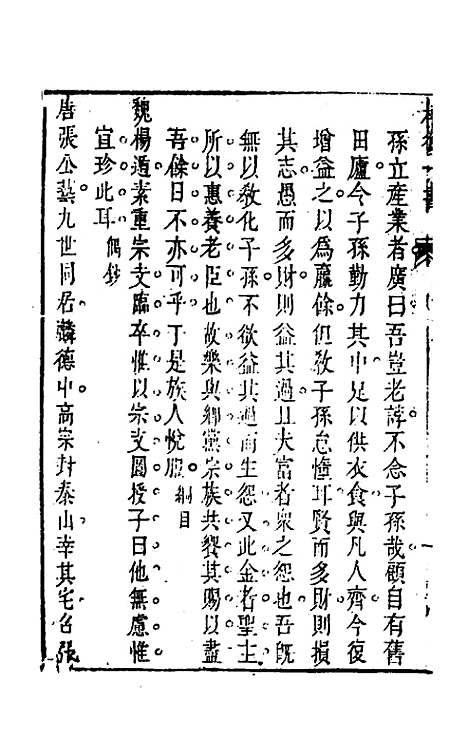 孫立産業者廣曰吾豈老誖不念子孫哉顧自有舊
田廬令子孫勤力其中足以供衣食與凡人齊今復
增益之以爲贏餘但敎子孫怠惰耳賢而多財則損
其志愚而多財則益其過且夫富者衆之怨也吾旣
無以敎化子孫不欲益其過而生怨又此金者聖主
所以惠養老臣也故樂與鄕黨宗族共饗其賜以盡
吾餘日不亦可乎于是族人悅服綱目
魏楊遁素重宗支臨卒惟以宗支圖授子曰他無慮惟
宜珍此耳偶鈔
唐張公藝九世同居麟德中高宗封泰山幸其宅召張